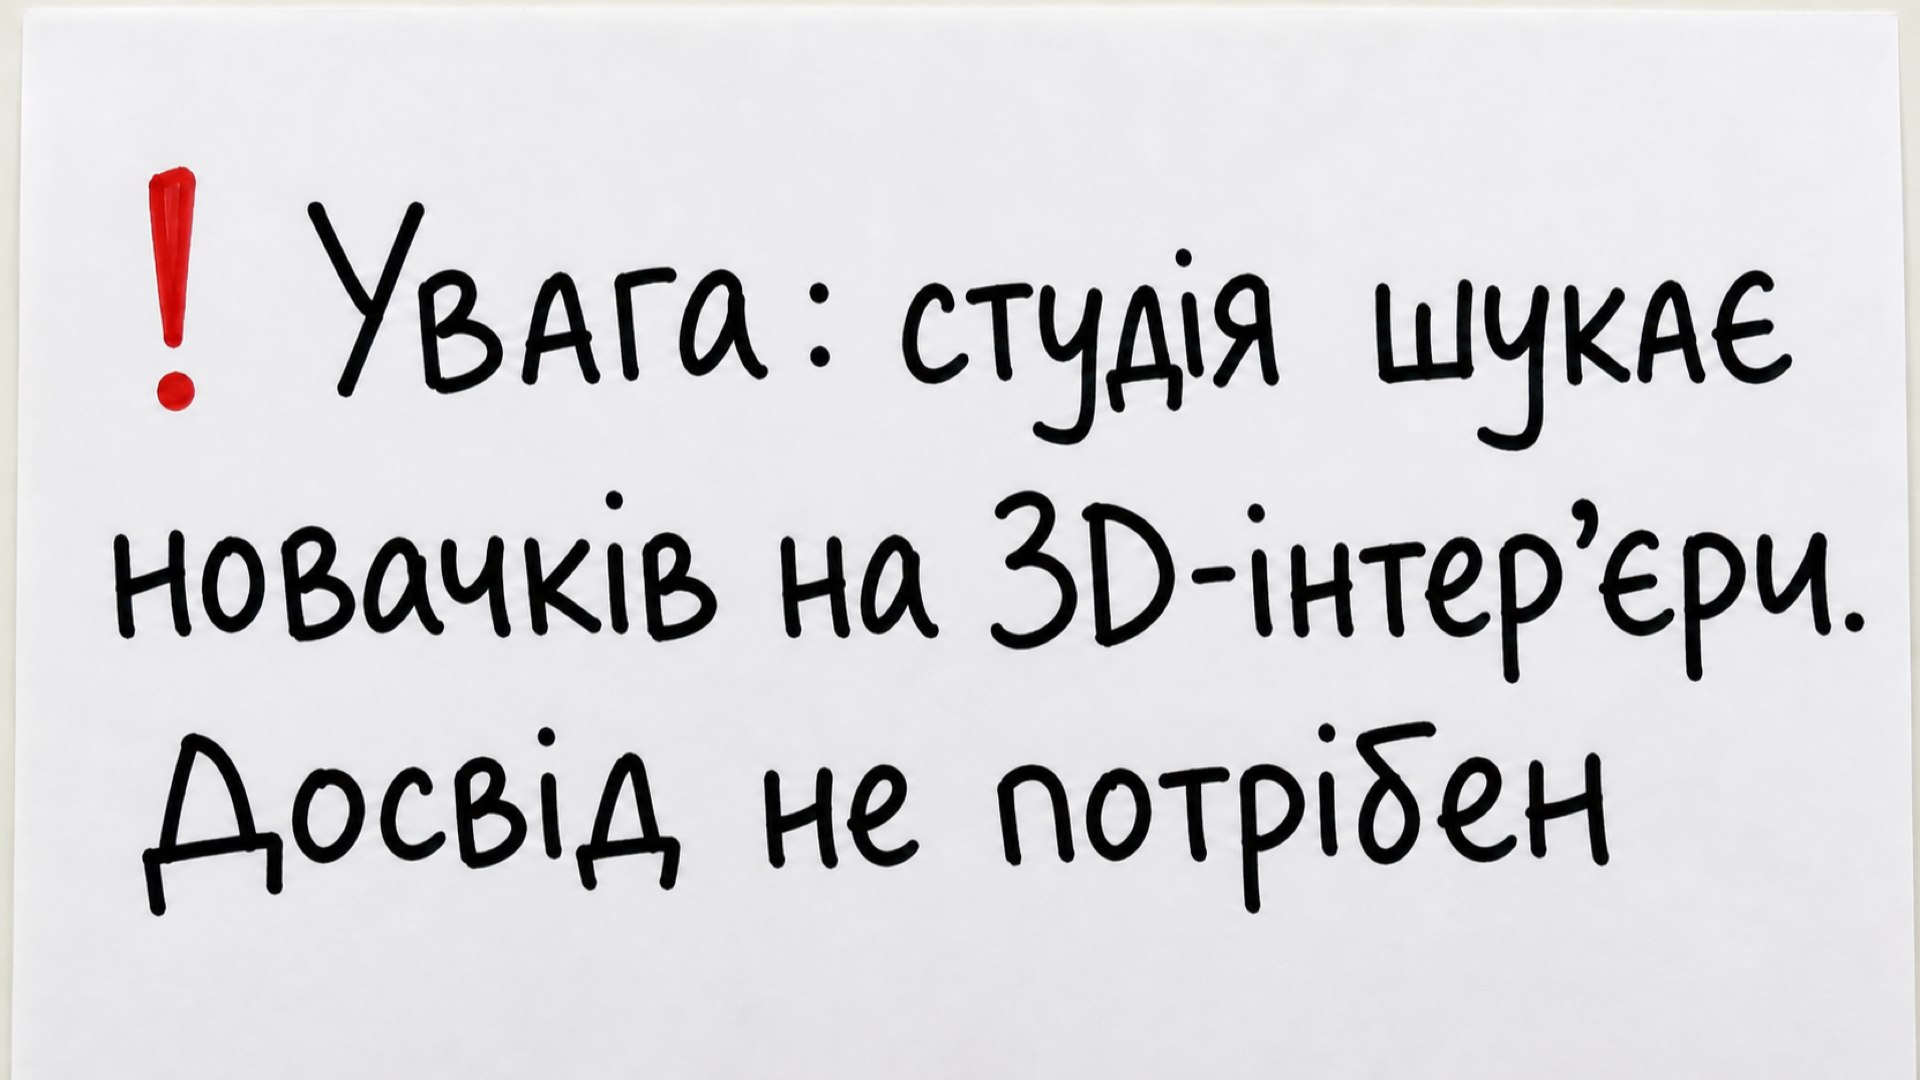 ❗ Увага: студія шукає
новачків на 3D-інтер’єри.
Досвід не потрібен